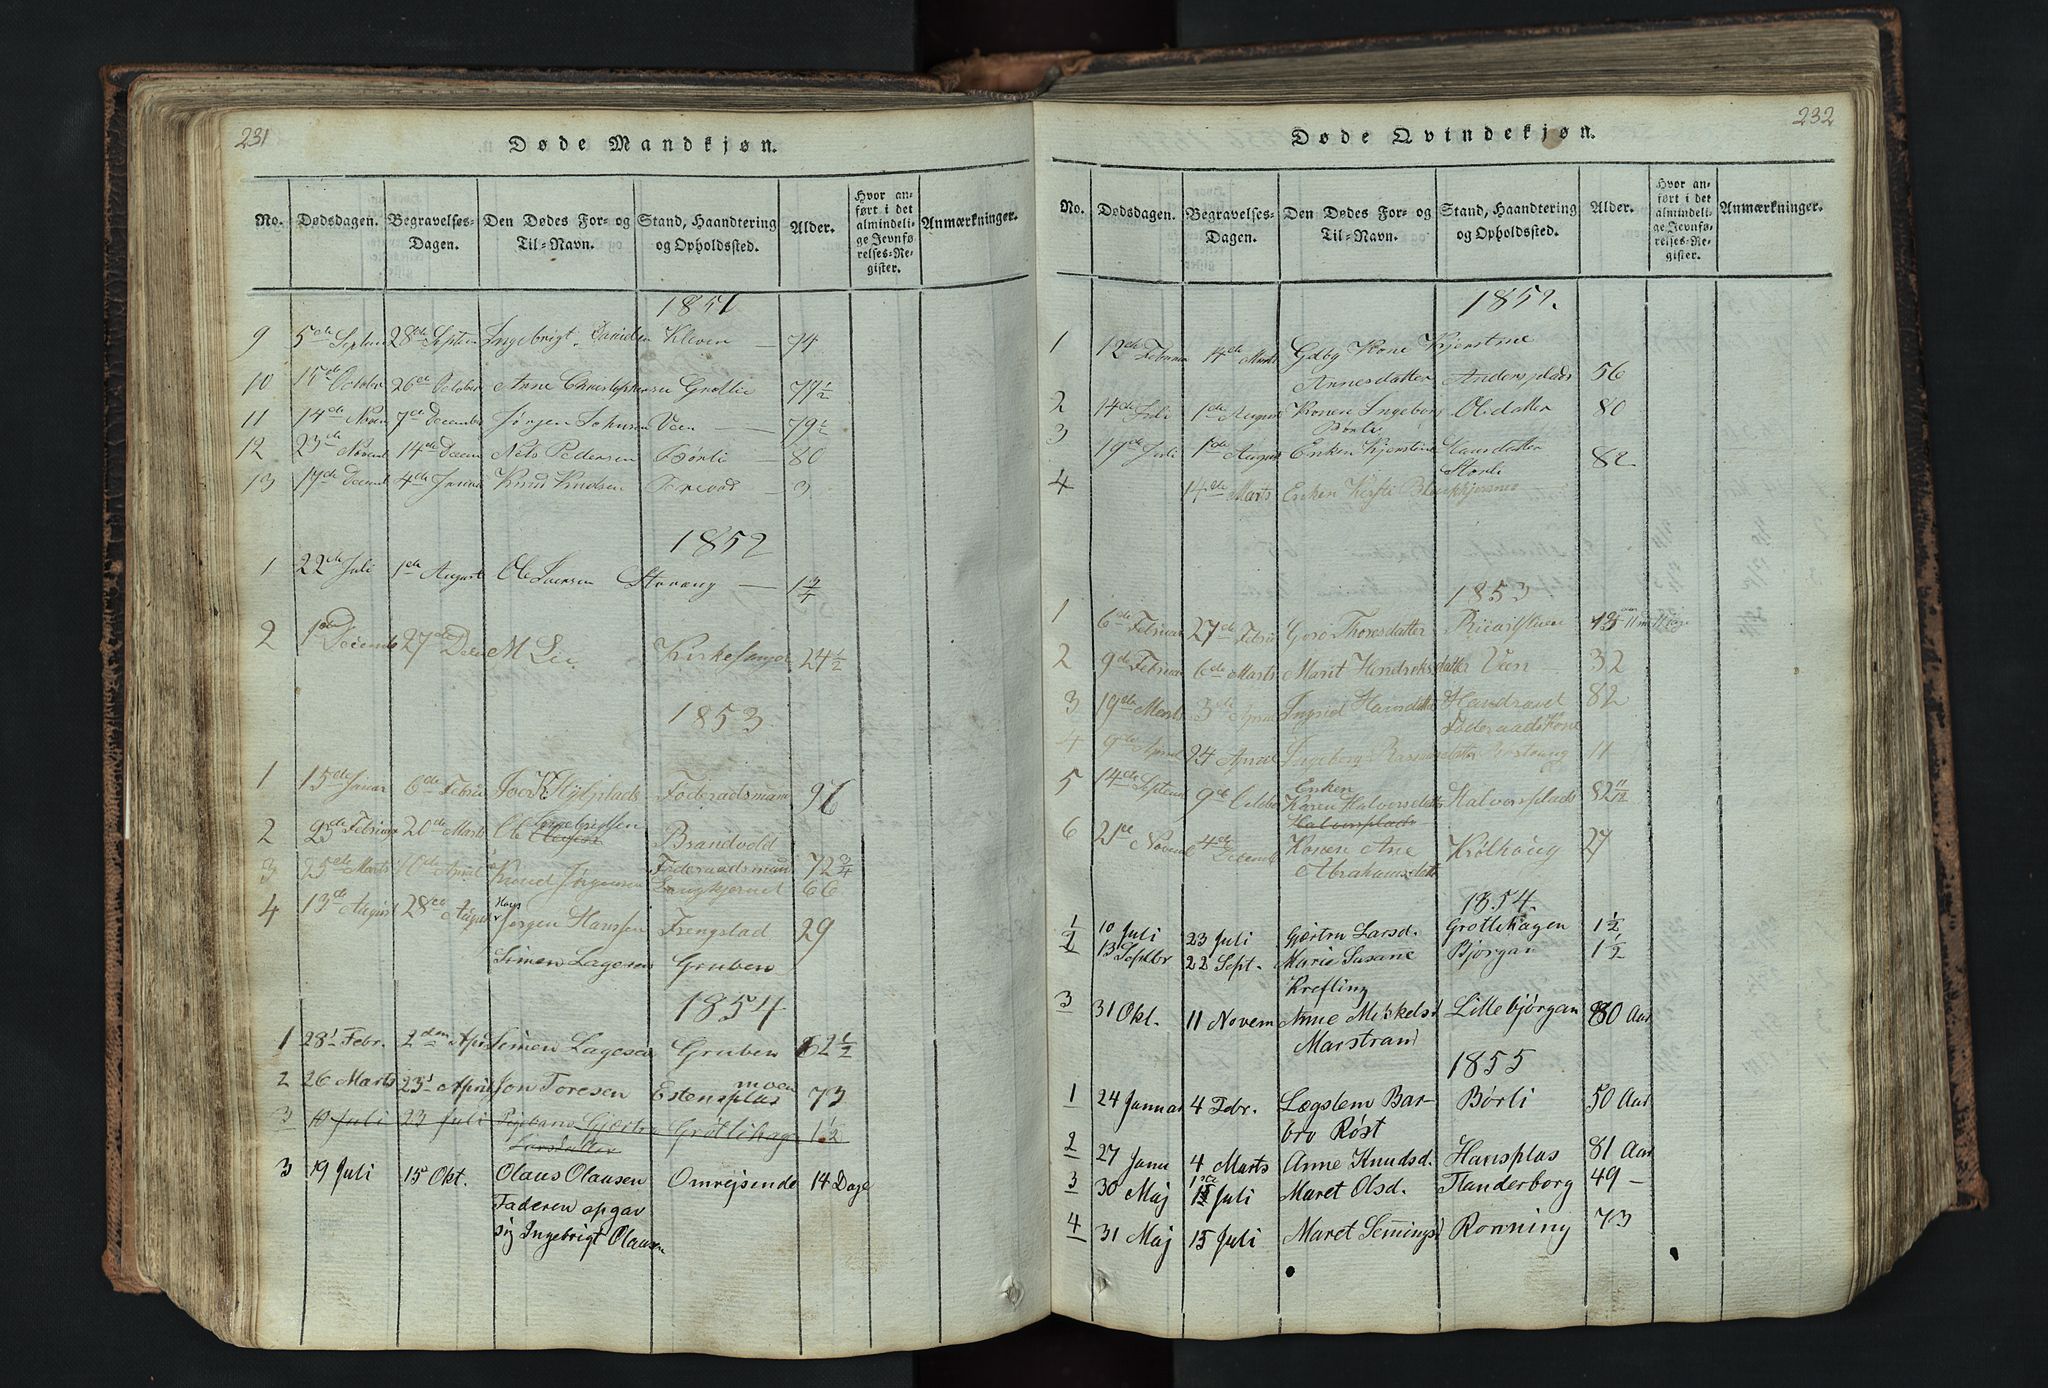 231
Døde Mandkjøn.
No. Dødsdagen. Begravelses-Dagen. Den Dødes For- og Til-Navn. Stand, Haandtering og Opholdssted. Alder. Hvor anført i det almindelige Jevnførelses-Register. Anmærkninger.
1851
9 5de Septem 28de Septem Ingebrigt Kleven — 74
10 15de October 26de October Arne Christophersen Grøtlie 77 1/2
11 14de Novem 7de December Jørgen Johnsen Veen — 79 1/2
12 23de Novemb 14de Decem Nels Pedersen Børli 80
13 19de Decemb 4de Januar Knud Knudsen — 3
1852
1 22de Juli 1ste August Ole Larsen — 1 3/4
2 1ste Decemb 27de Decem M Lie. Kirkesanger 24 1/2
1853
1 15de Januar 6de Februar Føderaadsmand
2 23de Februar 20de Marts Ole Ingebrigtsen Brandvold
3 25de Marts 10de April Knud Jørgensen Føderaadsmand 72 3/4
Langkjernet 66
4 13de August 28de August Jørgen Hanssen Trengstad 29
Simen Lagesen Gruben
1854
1 28d Febr. 2den Apr Simen Lagesen Gruben 62 1/2
2 26 Marts 23d April Jon Toresen Estensplas moen 73
3 10 Juli 23 Juli Pigebarn Gjertru Grøttihagen 1 1/2
Larsdatter
3 19 Juli 15 Okt. Olaus Olausen Omrejsende 14 Dage
Faderen opgav
sig Ingebrigt Olausen
232
Døde Qvindekjøn.
No. Dødsdagen. Begravelses-Dagen. Den Dødes For- og Til-Navn. Stand, Haandtering og Opholdssted. Alder. Hvor anført i det almindelige Jevnførelses-Register. Anmærkninger.
1852.
1 12de Februar 14de Marts Gdbg Kone Kjerstine
Arnesdatter Andersplads 56
2 14de Juli 1ste August Konen Ingeborg Olsdatter 80
Børli
3 19de Juli 1ste August Enken Kjerstine Hansdatter 82
Storli
4 14de Marts Enken Kirsti
1853
1 6de Februar 27de Febru Goro Thoresdatter 13
2 9de Februar 6de Marts Marit Hendriksdatter Veen — 32
3 19de Marts 3de April Ingrid Hansdatter 82
Føderaadskone
4 9de April 24 April Ingeborg 11
5 14de Septem 9de Octobr Enken
Karen Halvorsdatter Halvorsplads 82 11/12
Halvorsplads
6 21de Novemb 4de Decemb Konen Ane Krølhoug 27
Abrahamsdatter
1854.
1 10 Juli 23 Juli Gjertru Larsd. Grøttihagen 1 1/2
2 13 Septbr 22 Sept. Marie Susanne Bjørgan 1 1/2
Krefling
3 31 Okt. 11 Novem Anne Mikkelsd Lillebjørgan 80 Aar
Marstrand
1855
1 24 Januar 4 Febr. Lægslem Bar- Børli 50 Aar
bro Røst
2 27 Janu 4 Marts Anne Knudsd. Hansplas 81 Aar
3 30 Maj 1ste Juli Maret Olsd. Flanderborg 49 —
4 31 Maj 15 Juli Maret Semingsd Rønning 73